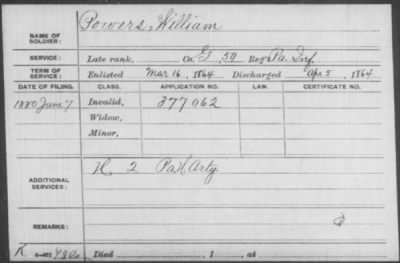 Powers, William
NAME OF SOLDIER:
SERVICE: Late rank, Co. G, 50 Reg't Pa. Inf.
TERM OF SERVICE: Enlisted Mar. 16, 1864. Discharged Apr 5, 1864
DATE OF FILING. CLASS. APPLICATION NO. LAW. CERTIFICATE NO.
1880 June 7 Invalid, 377062
Widow,
Minor,
ADDITIONAL SERVICES: H 2 Pa H Arty
REMARKS:
Died , 1 , at